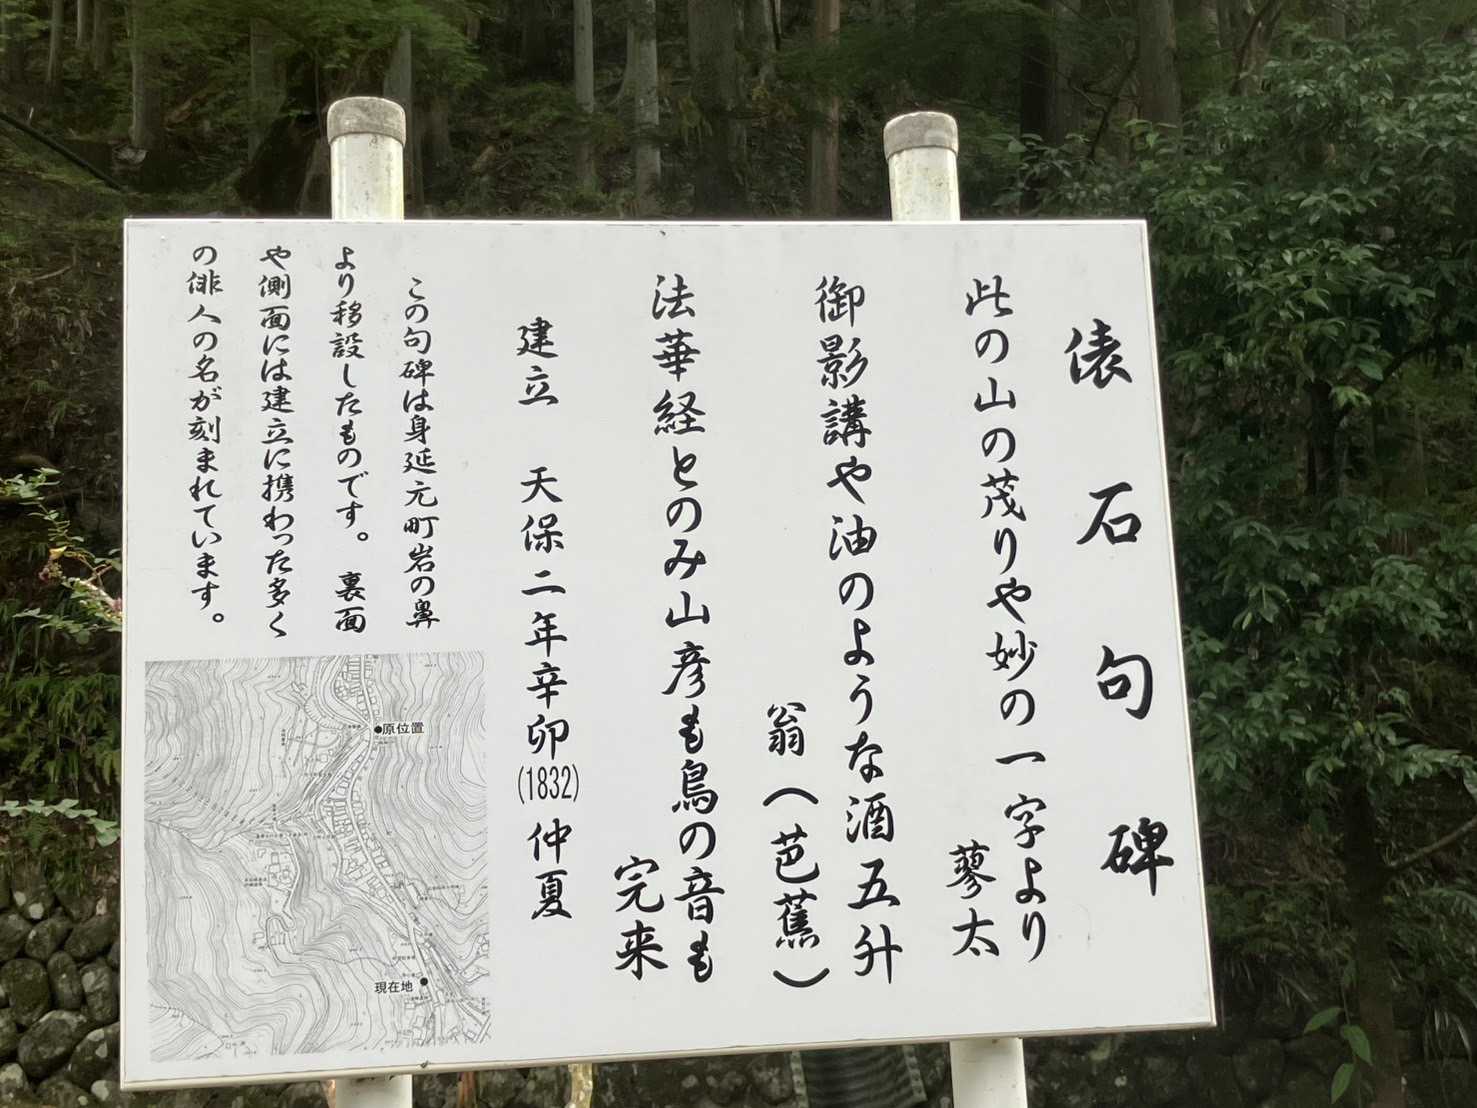 俵石句碑
此の山の茂りや妙の一字より
蓼太
御影講や油のような酒五升
翁（芭蕉）
法華経とのみ山彦も鳥の音も
完来
建立　天保二年辛卯(1832)仲夏
この句碑は身延元町岩の鼻
より移設したものです。裏面
や側面には建立に携わった多く
の俳人の名が刻まれています。
原位置
現在地